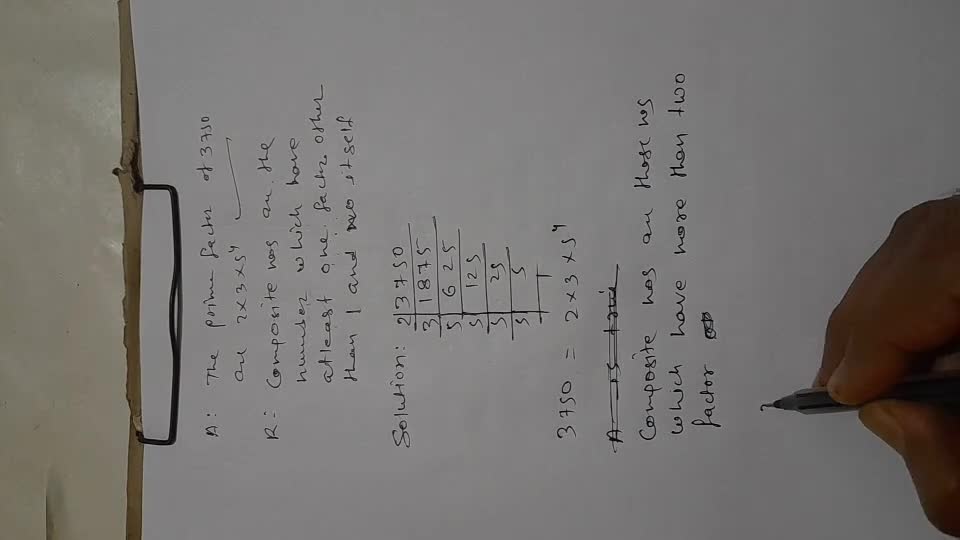 A: The prime factor of 3750
are 2×3×5⁴
R: Composite nos are the
number which have
atleast one factor other
than 1 and itself
Solution: 2 3750
3 1875
5 625
5 125
5 25
5 5
1
3750 = 2×3×5⁴
A is true
Composite nos are those nos
which have more than two
factor